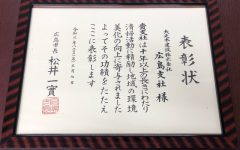 表彰状
広島支社 様
貴支社は十年以上の長きにわたり
清掃活動に精励し地域の環境
美化の向上に寄与されました
よってその功績をたたえ
ここに表彰します
広島市長
松井一實